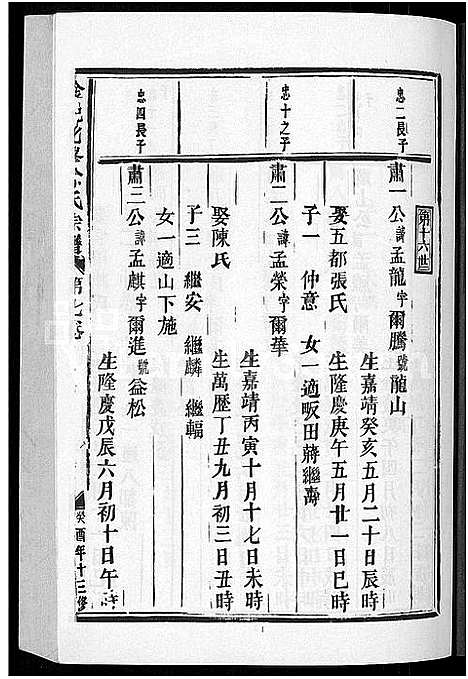 第十六世
忠二長子
肅一公諱孟龍字爾騰號龍山
生嘉靖癸亥五月二十日辰時
娶五都張氏
生隆慶庚午五月廿一日巳時
子一 仲意 女一適畈田蔣繼壽
忠十之子
肅二公諱孟榮字爾華
生嘉靖丙寅十月十七日未時
娶陳氏
生萬歷丁丑九月初三日丑時
子三 繼安 繼麟 繼輻
女一適山下施
忠四長子
肅三公諱孟麒字爾進號益松
生隆慶戊辰六月初十日午時
氏宗譜 第七卷
癸酉年十三修